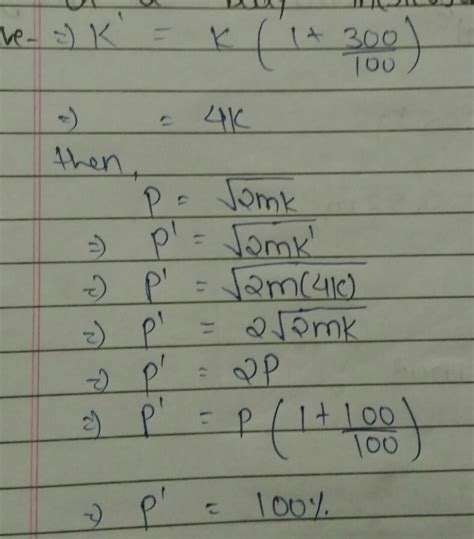 of a body
ve- => K' = K (1 + 300/100)
=> = 4K
then,
P = √2mK
=> P' = √2mK'
=> P' = √2m(4K)
=> P' = 2√2mK
=> P' = 2P
=> P' = P (1 + 100/100)
=> P' = 100%.